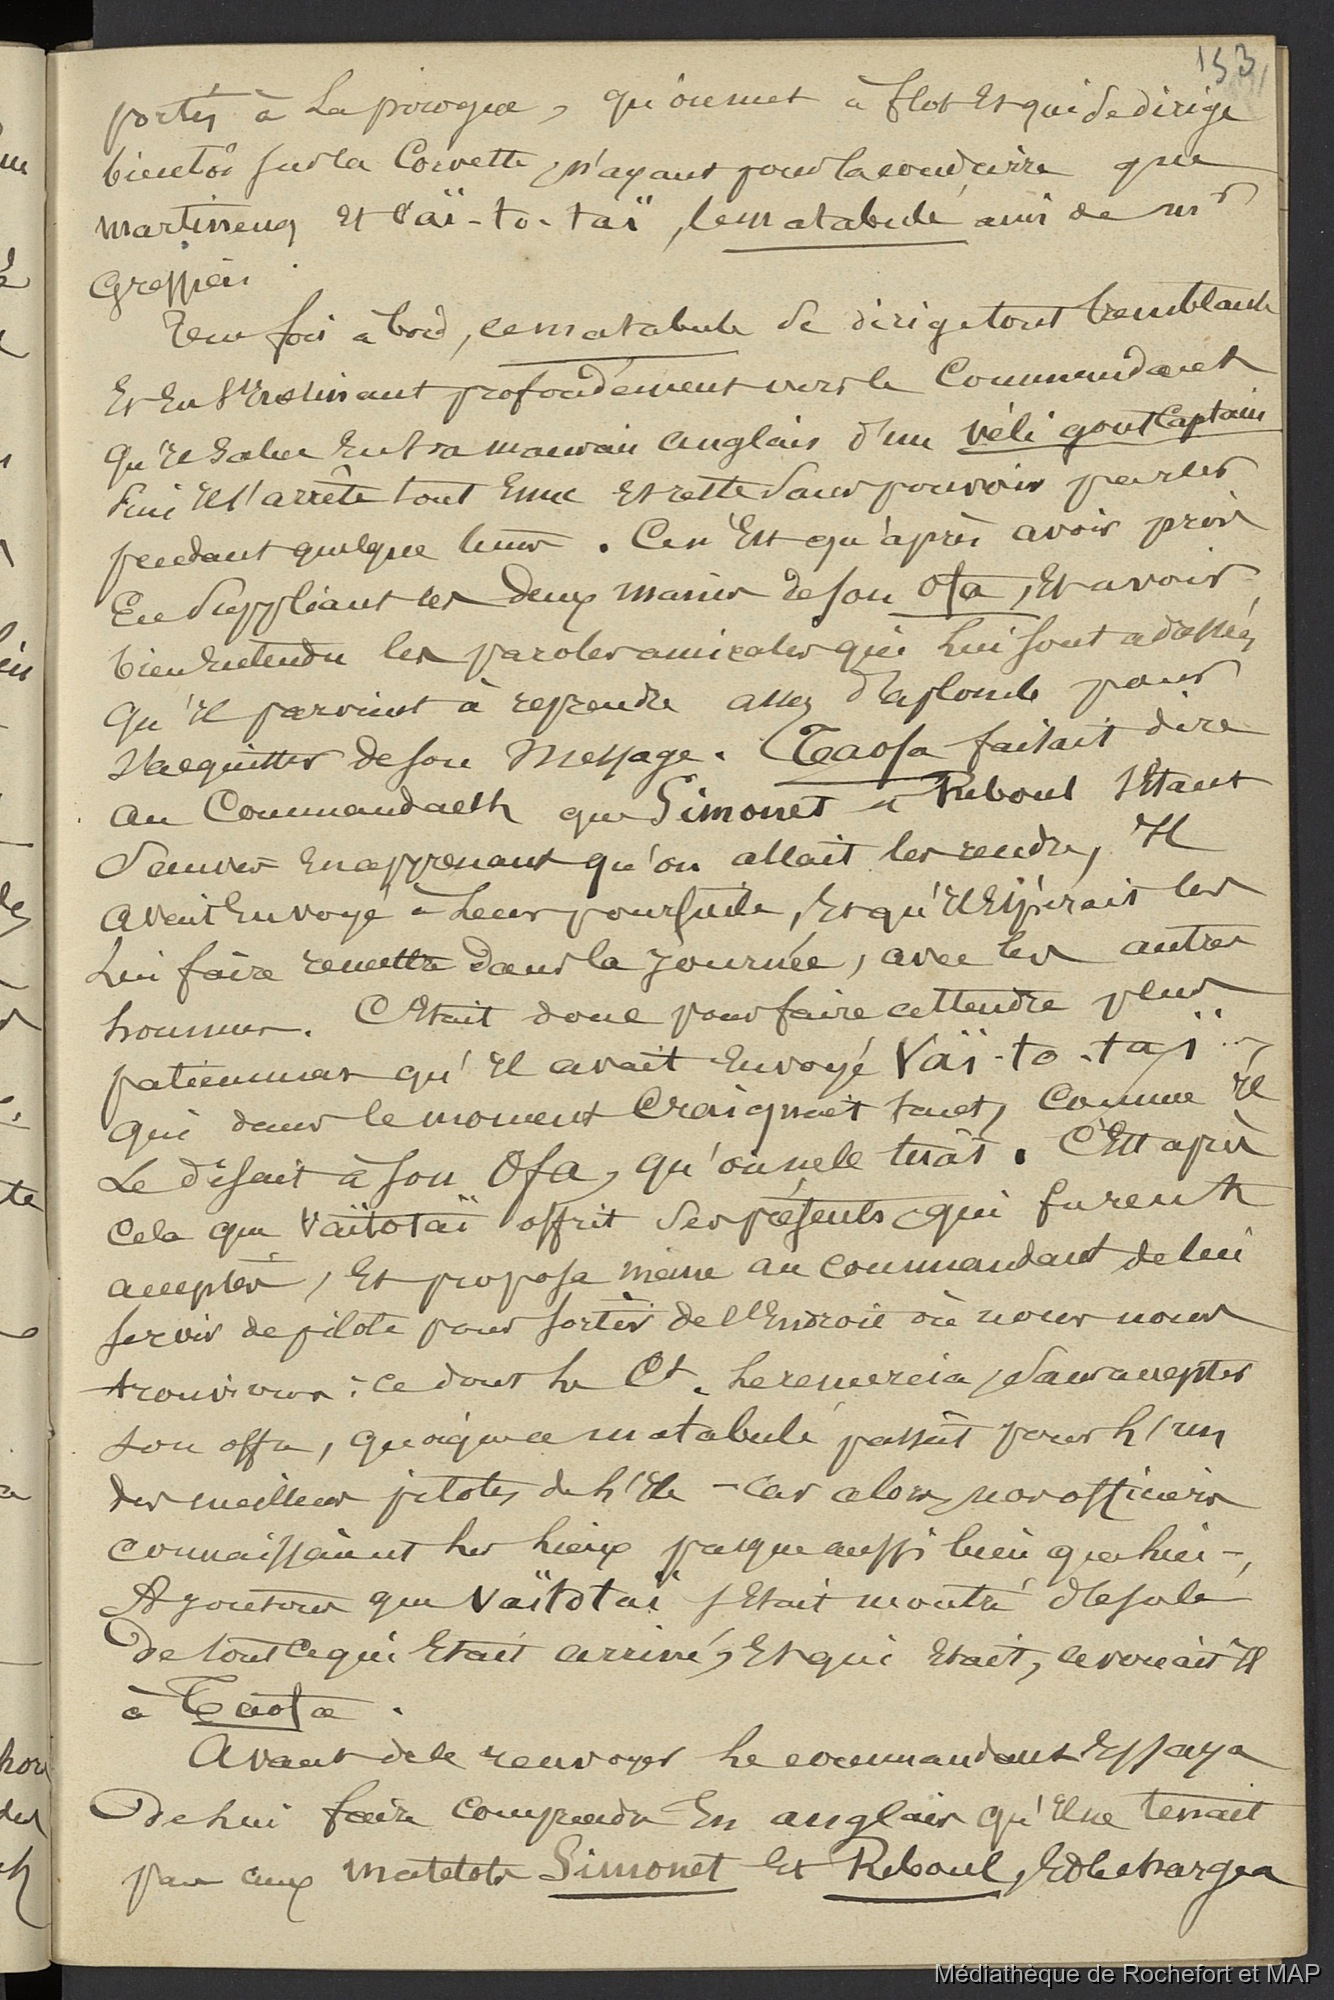 153
portés à la pirogue, qu'on met à flot et qui se dirige
bientôt sur la Corvette, n'ayant pour la conduire que
martineng et Vaï-to-taï, le matabulé ami de mr
Gressien.
Une fois à bord, ce matabule se dirige tout tremblant
et en s'inclinant profondément vers le Commandant
qu'il salue en sa mauvais anglais d'un véli gout Captain
puis il s'arrête tout ému et reste sans pouvoir parler
pendant quelque tems. Ce n'est qu'après avoir pris
en suppliant les deux mains de son Ofa, et avoir
bien entendu les paroles amicales qui lui sont adressées
qu'il parvient à reprendre assez d'aplomb pour
s'acquitter de son message. Taofa faisait dire
au Commandant que Simonet et Reboul s'étant
sauvés en apprenant qu'on allait les rendre, il
avait envoyé à leur poursuite, et qu'il espérait les
lui faire remettre dans la journée, avec les autres
hommes. C'était donc pour faire attendre plus
patiemment qu'il avait envoyé Vaï-to-taï
qui dans le moment craignait tant, comme il
le disait à son Ofa, qu'on ne le tuât. C'est après
cela que Vaïtotaï offrit ses présents, qui furent
acceptés, et proposa même au commandant de lui
servir de pilote pour sortir de l'endroit où nous nous
trouvions : ce dont le Ct. le remercia, sans accepter
son offre, quoique ce matabulé passât pour l'un
des meilleurs pilotes de l'île - car alors, nos officiers
connaissaient les lieux presque aussi bien que lui -,
Ajoutons que Vaïtotaï s'était montré désolé
de tout ce qui était arrivé, et qui était, avouait il
à Taofa.
Avant de le renvoyer le commandant essaya
de lui faire comprendre en anglais qu'il ne tenait
pas aux matelots Simonet et Reboul, et le chargea
Médiathèque de Rochefort et MAP